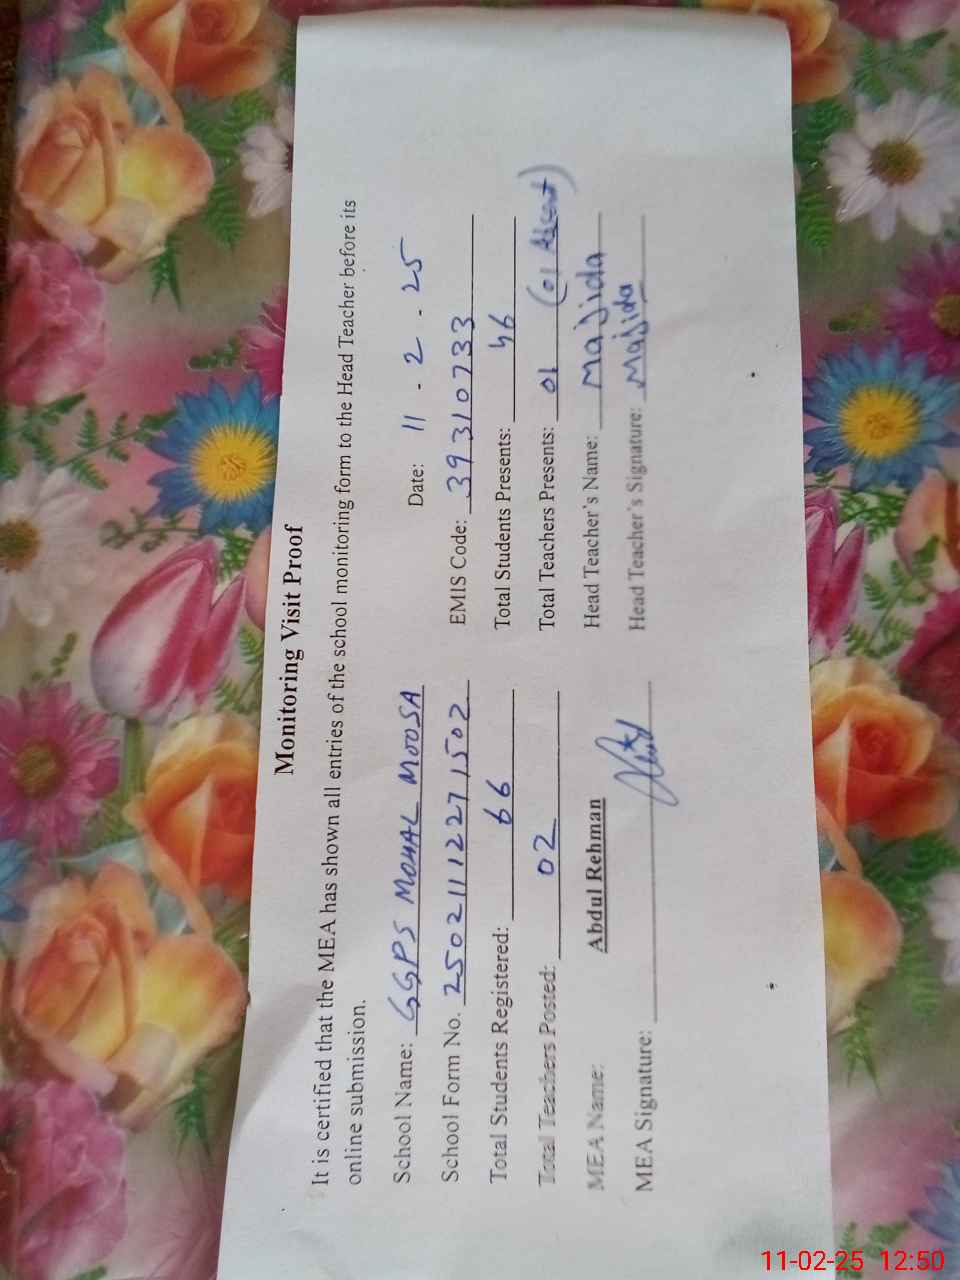 Monitoring Visit Proof
It is certified that the MEA has shown all entries of the school monitoring form to the Head Teacher before its
online submission.
School Name: GGPS MOHAL MOOSA Date: 11 - 2 - 25
School Form No. 25021112271502 EMIS Code: 39310733
Total Students Registered: 66 Total Students Presents: 46
Total Teachers Posted: 02 Total Teachers Presents: 01 (01 Absent)
MEA Name: Abdul Rehman Head Teacher's Name: Majida
MEA Signature: Head Teacher's Signature: Majida
11-02-25 12:50